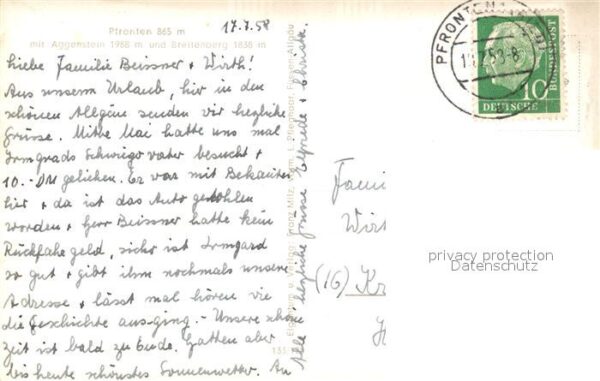 Pfronten 865 m
17.7.58
mit Aggenstein 1988 m und Breitenberg 1838 m
Liebe Familie Beissner + Wirth!
Aus unserm Urlaub, hier in den
schönen Allgäue senden wir herzliche
Grüsse. Mitte Mai hatte uns mal
Irmgrads Schwiegervater besucht +
10.- DM geliehen. Er war mit Bekannten
hier + da ist das Auto gestohlen
worden + Herr Beissner hatte kein
Rückfahrgeld, sicher ist Irmgard
so gut + gibt ihm nochmals unsere
Adresse + lässt mal hören wie
die Geschichte ausging. - Unsere schöne
Zeit ist bald zu Ende. Hatten aber
bis heute schönstes Sonnenwetter. An
Alle herzliche Grüsse Elfriede + Christa.
Franz Milz, Füssen, Allgäu
PFRONTEN
DEUTSCHE
BUNDESPOST
10
Fami
Wirt
(16) Kr
privacy protection
Datenschutz